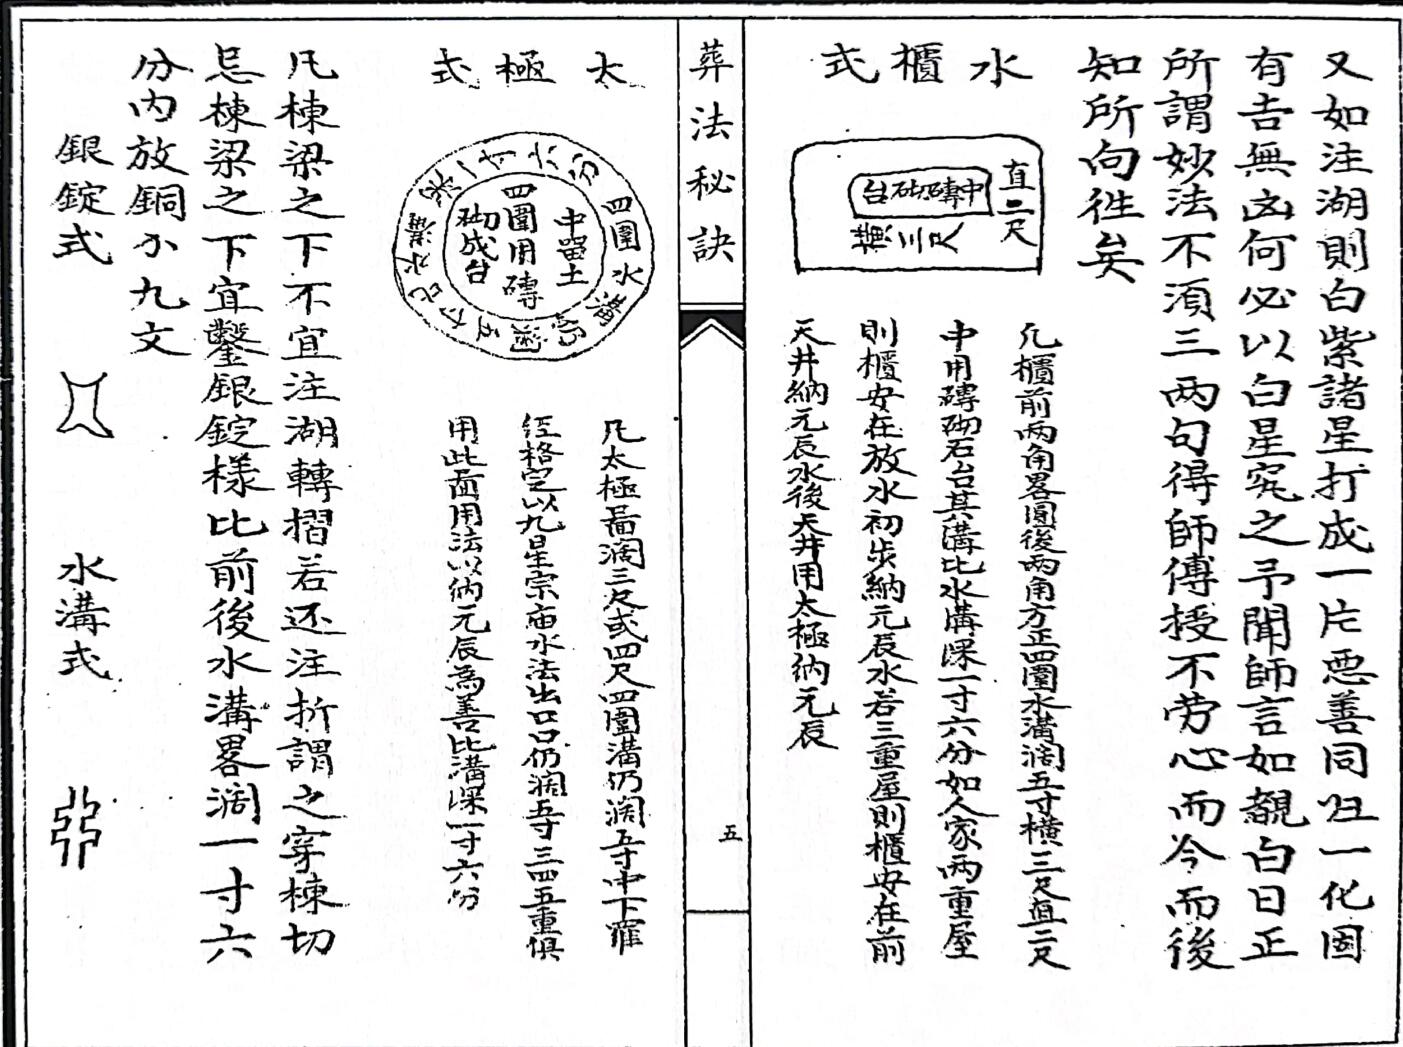 又如注湖則白紫諸星打成一片恶善同归一化固
有吉無凶何必以白星究之予聞師言如覩白日正
所謂妙法不須三两句得師傅授不劳心而今而後
知所向徃矣
水櫃式
直二尺
中磚砌台
橫三尺
凢櫃前两角畧圓後两角方正四圍水溝阔五寸橫三尺直二尺
中用磚砌石台其溝比水溝深一寸六分如人家两重屋
則櫃安在放水初步納元辰水若三重屋則櫃安在前
天井納元辰水後天井用太極納元辰
葬法秘訣
五
太極式
四圍水溝
阔五寸比水溝深一寸六分
中畱土
四圍用磚
砌成台
凢太極啚阔三尺或四尺四圍溝仍阔五寸中下罹
經格定以九星宗庙水法出口口仍阔五寸三四五重俱
用此啚用法以納元辰為善比溝深一寸六分
凢棟梁之下不宜注湖轉摺若还注折謂之穿棟切
忌棟梁之下宜鑿銀錠樣比前後水溝畧阔一寸六
分内放銅小九文
銀錠式
水溝式